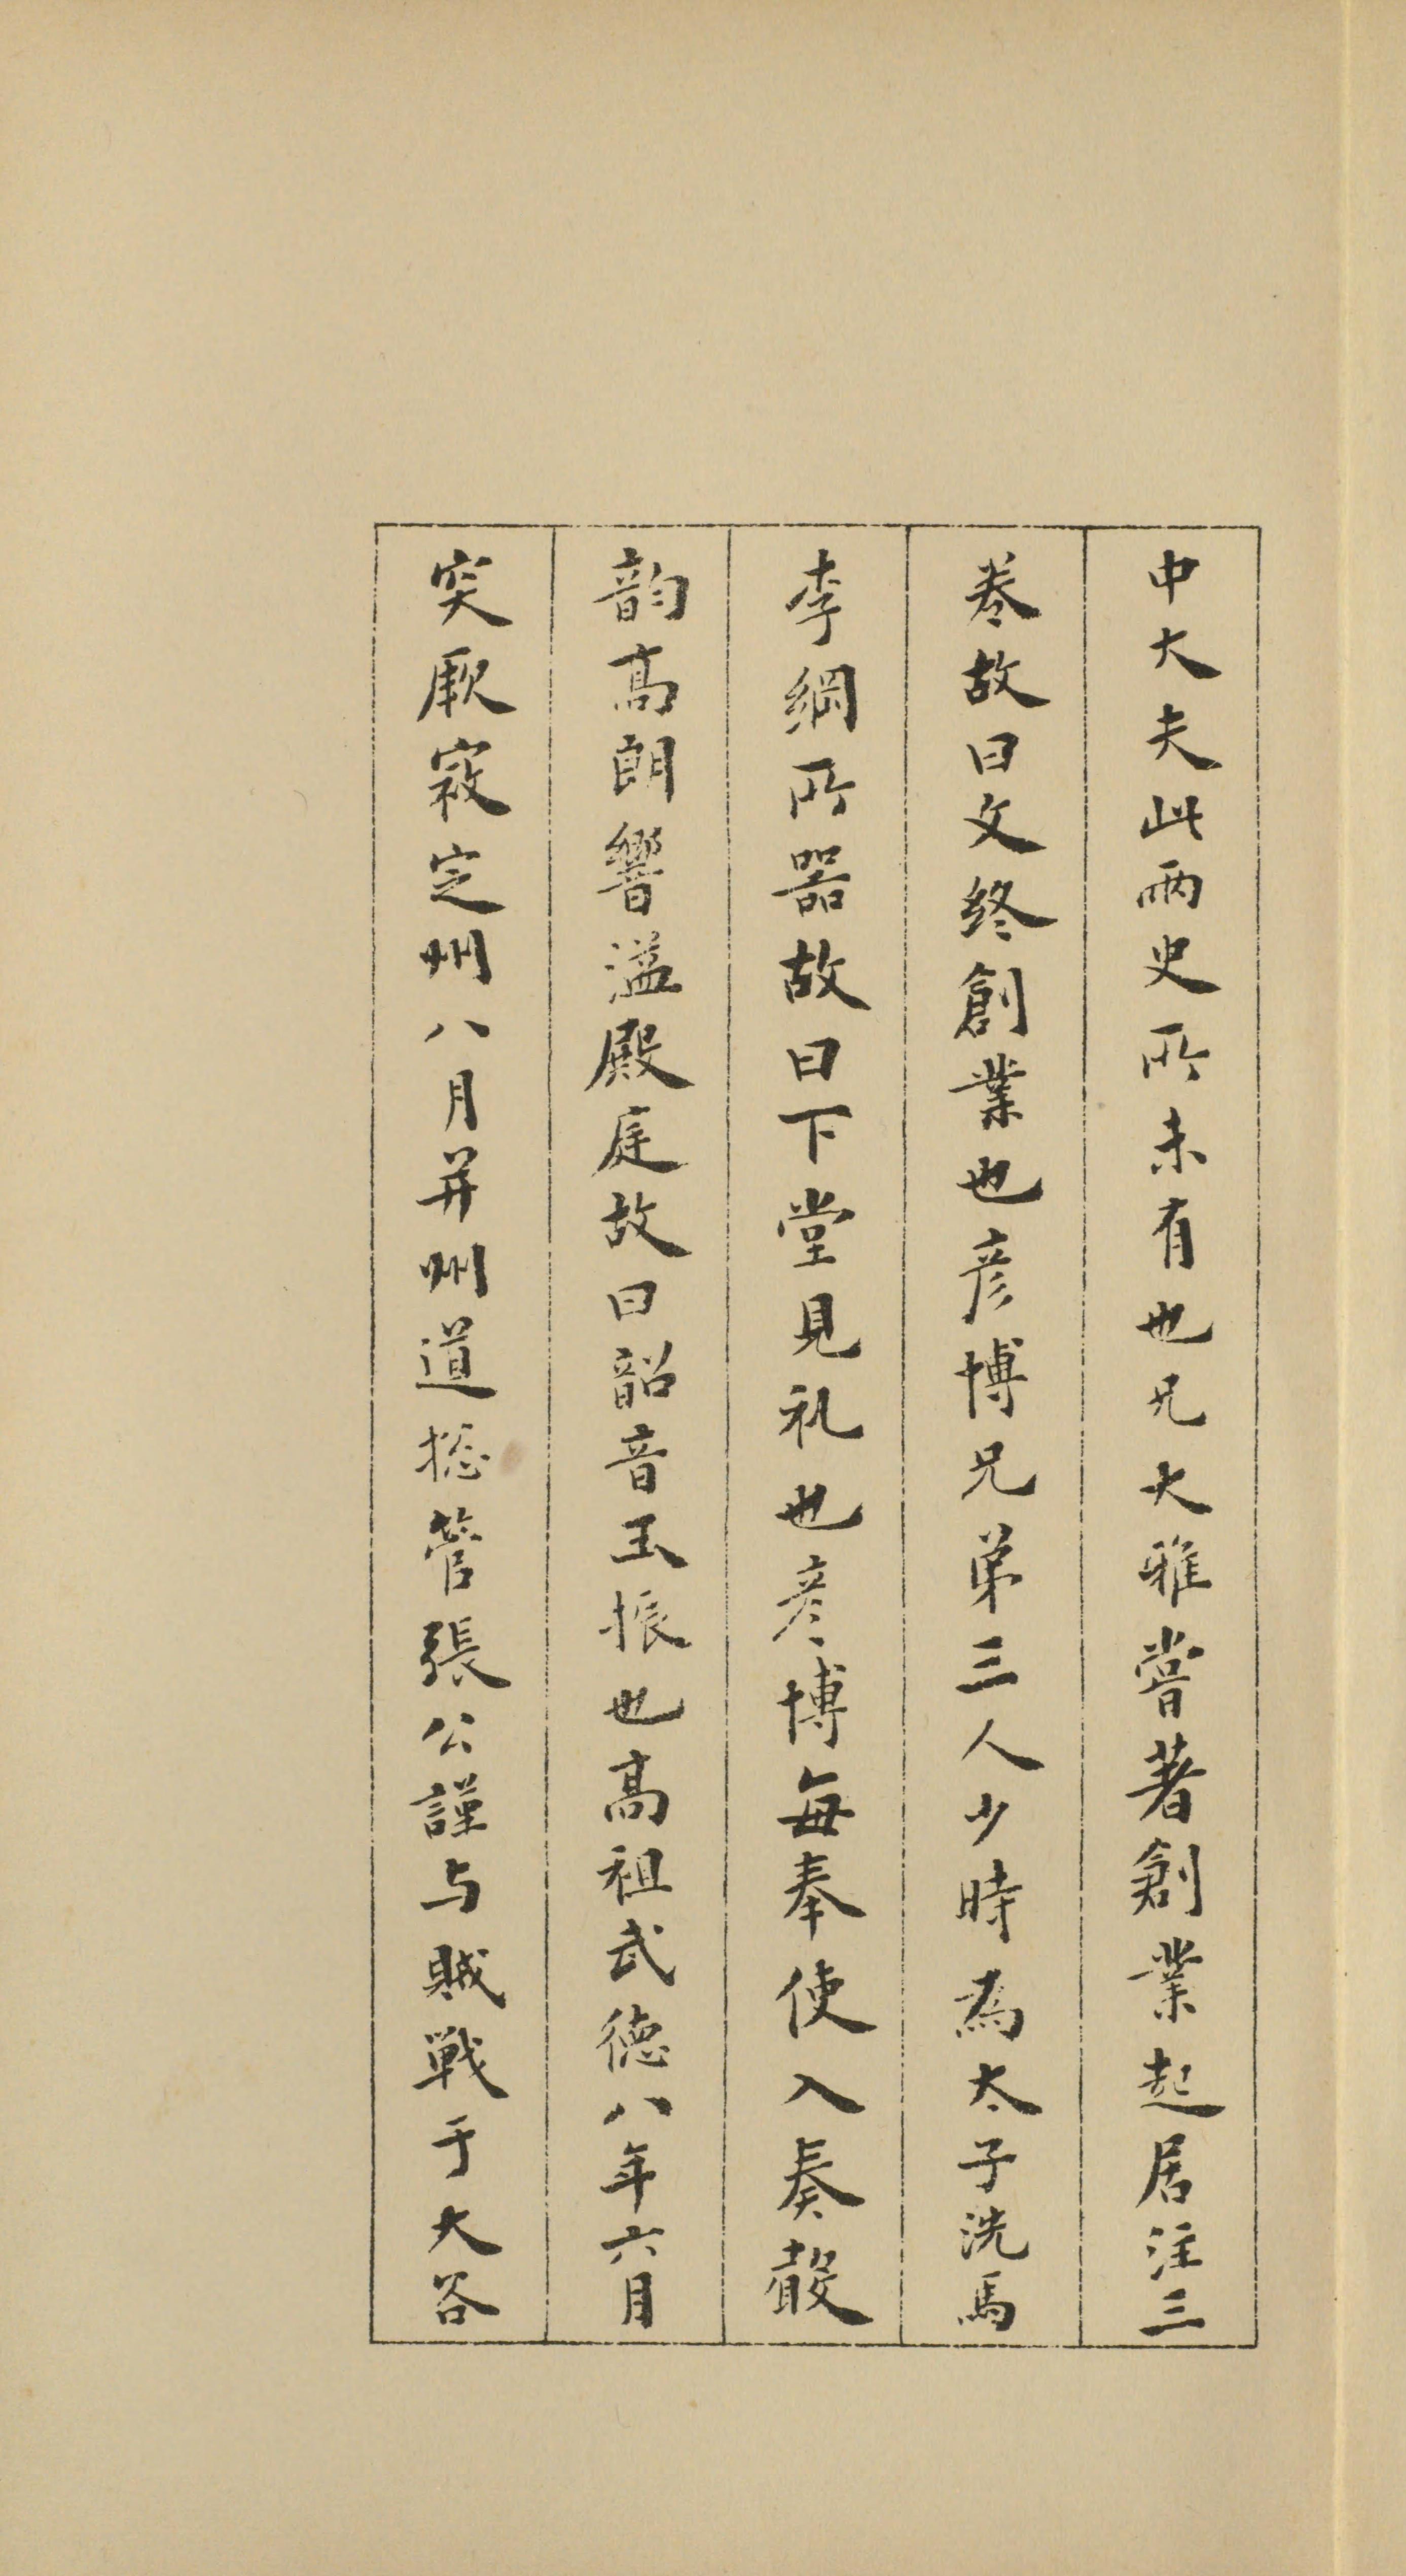 中大夫此兩史所未有也兄大雅嘗著創業起居注三
卷故曰文終創業也彦博兄弟三人少時為太子洗馬
李綱所器故曰下堂見礼也彦博每奉使入奏聲
韵高朗響溢殿庭故曰韶音玉振也高祖武徳八年六月
突厥寇定州八月并州道捴管張公謹与賊戦于大谷